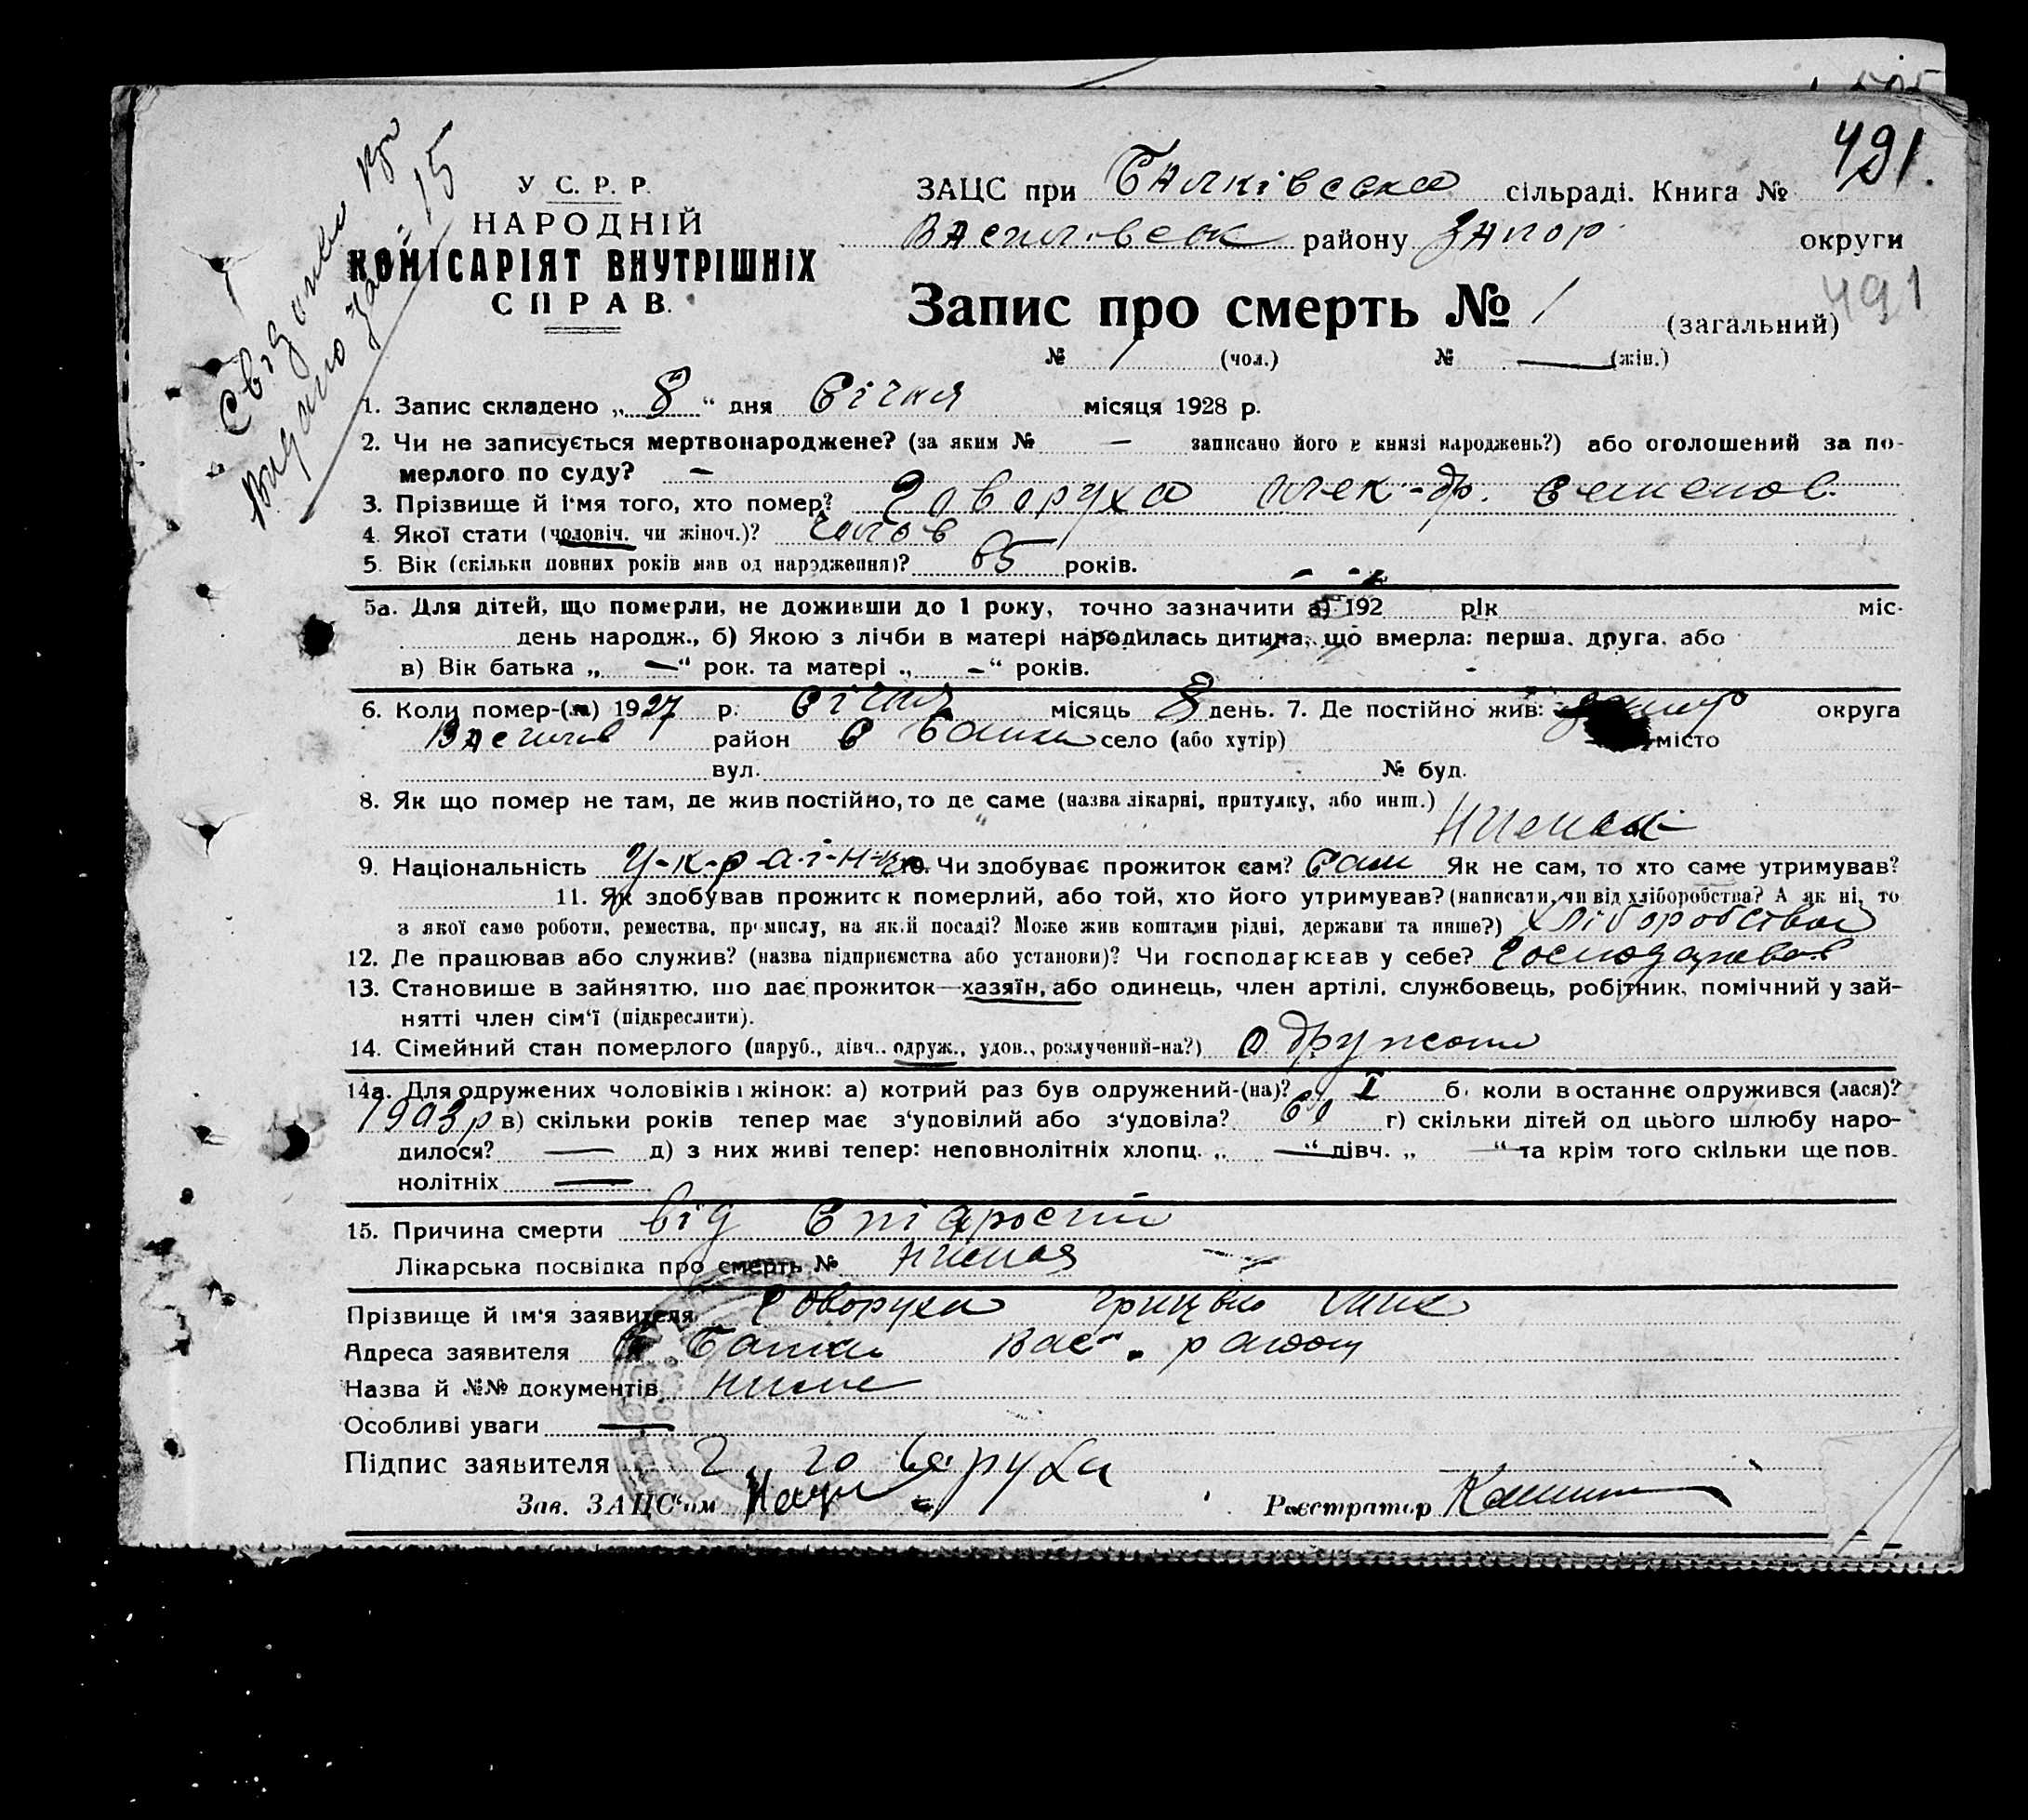 491.
Свідоцтво
видано за № 15
У С. Р. Р.
НАРОДНІЙ
КОМІСАРІЯТ ВНУТРІШНІХ
СПРАВ.
ЗАЦС при Балківська сільраді. Книга №
Василівськ району Запор. округи
Запис про смерть № 1 (загальний)
491
№ 1 (чол.) № — (жін.)
1. Запис складено „ 8 “ дня Січня місяця 1928 р.
2. Чи не записується мертвонароджене? (за яким № — записано його в книзі народжень?) або оголошений за по-
мерлого по суду? —
3. Прізвище й ім'я того, хто помер? Говоруха Олек-др. Семенов.
4. Якої стати (чоловіч. чи жіноч.)? чолов
5. Вік (скільки повних років мав од народження)? 65 років.
5а. Для дітей, що померли, не доживши до 1 року, точно зазначити а) 192 рік міс.
день народж., б) Якою з лічби в матері народилась дитина, що вмерла: перша, друга, або
в) Вік батька „ — “ рок. та матері „ — “ років.
6. Коли помер-(ла) 1927 р. Січня місяць 8 день. 7. Де постійно жив: округа
Васил район С Балки село (або хутір) місто
вул. № буд.
8. Як що помер не там, де жив постійно, то де саме (назва лікарні, притулку, або инш.)
9. Національність У-к-р-а-ї-н-ц 10. Чи здобуває прожиток сам? Сам Як не сам, то хто саме утримував?
11. Як здобував прожиток померлий, або той, хто його утримував? (написати, чи від хліборобства? А як ні, то
з якої саме роботи, ремества, промислу, на якій посаді? Може жив коштами рідні, держави та инше?) хліборобства
12. Де працював або служив? (назва підприємства або установи)? Чи господарював у себе? Господарював
13. Становище в зайняттю, що дає прожиток—хазяїн, або одинець, член артілі, службовець, робітник, помічний у зай-
нятті член сім'ї (підкреслити).
14. Сімейний стан померлого (паруб., дівч., одруж., удов., розлучений-на?) Одружони
14а. Для одружених чоловіків і жінок: а) котрий раз був одружений-(на)? I б) коли в останнє одружився (лася)?
1903р в) скільки років тепер має з'удовілий або з'удовіла? 61 г) скільки дітей од цього шлюбу наро-
дилося? — д) з них живі тепер: неповнолітніх хлопц. „ — “ дівч. „ — “ та крім того скільки ще пов.
нолітніх —
15. Причина смерти від Старости
Лікарська посвідка про смерть № Немая
Прізвище й ім'я заявителя Говоруха Грицько
Адреса заявителя С Балки Вас. району
Назва й №№ документів нима
Особливі уваги —
Підпис заявителя Г говаруха
Зав. ЗАЦС'ом Реєстратор